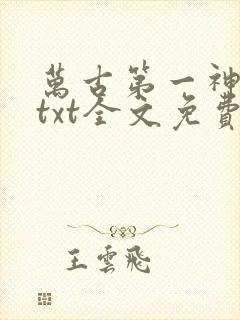 萬古第一神
txt全文免費
王雲飛